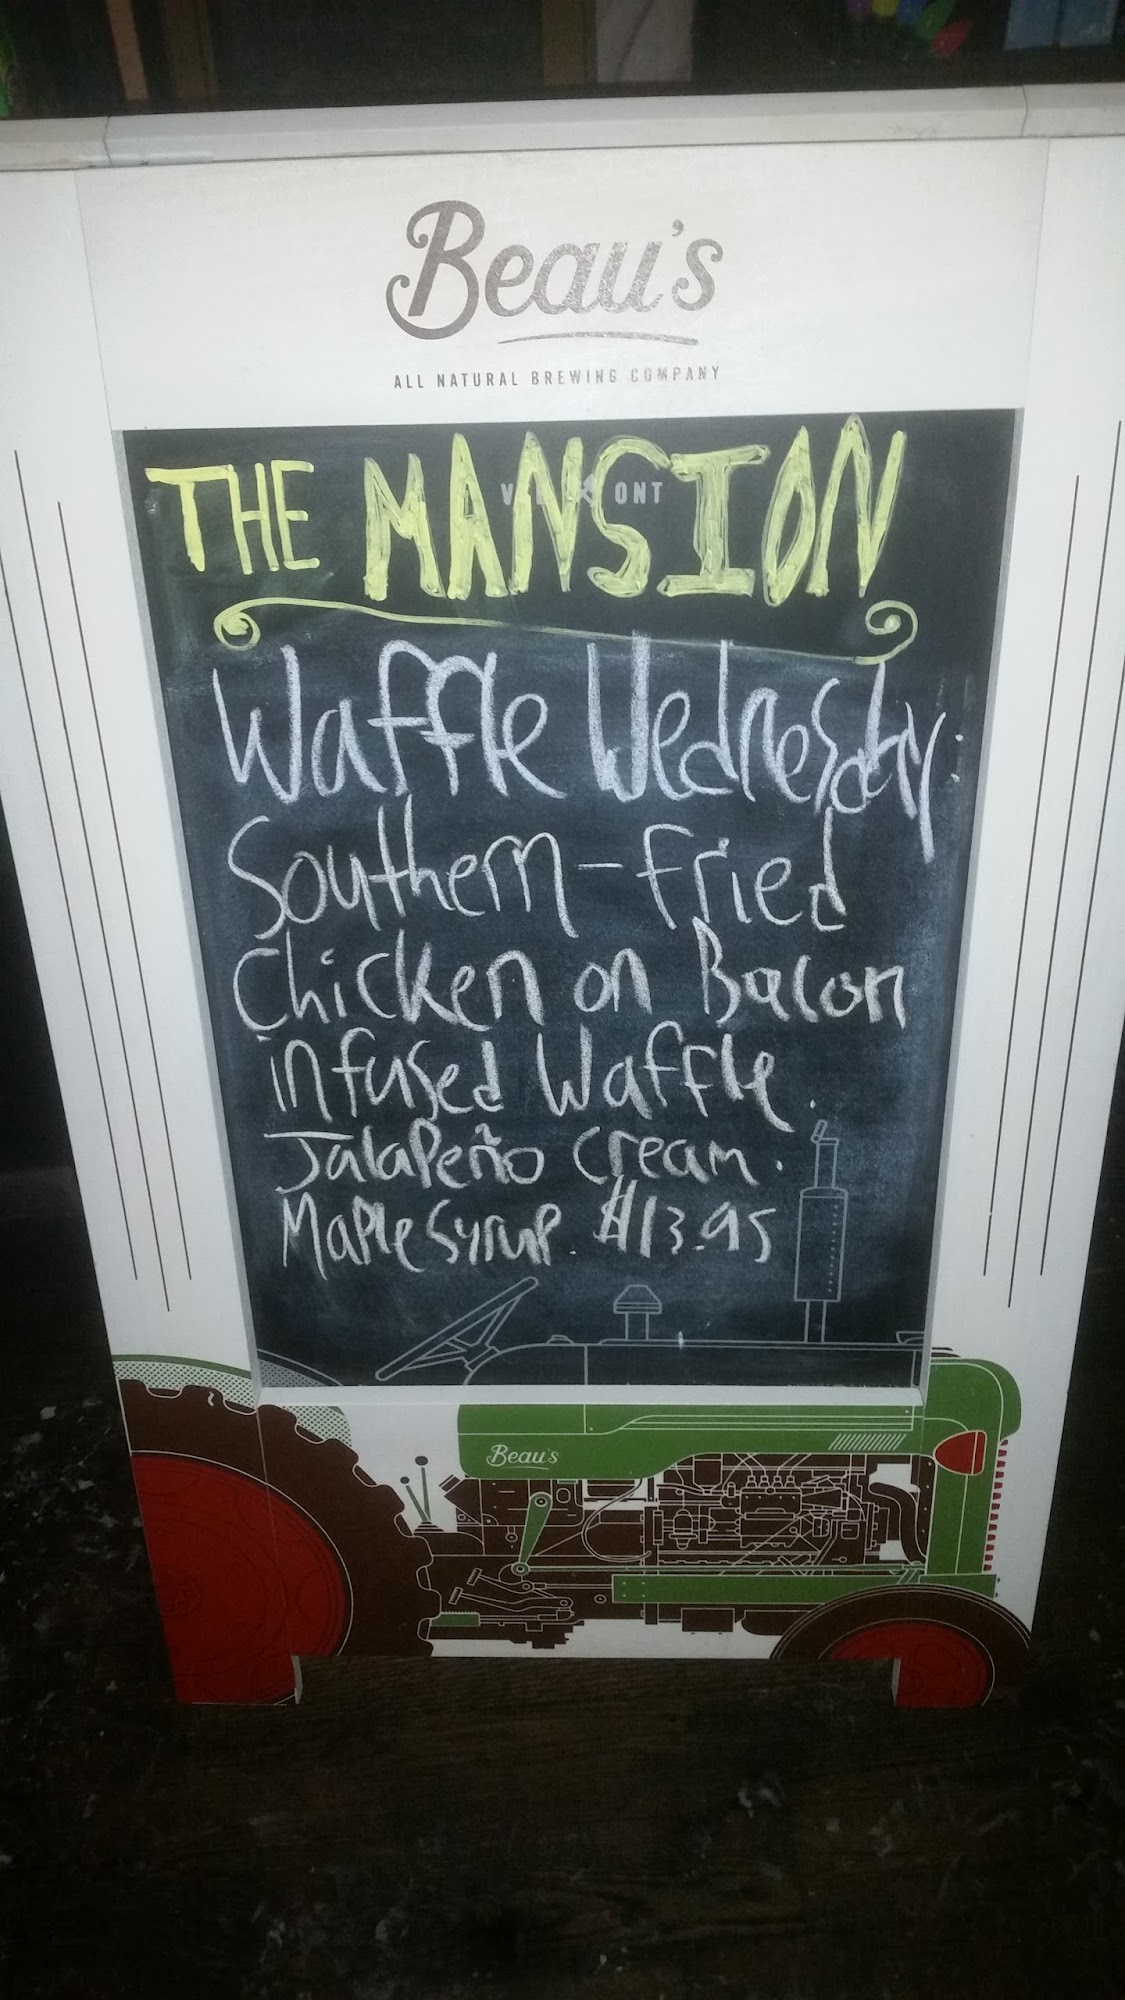 Beau's
ALL NATURAL BREWING COMPANY
THE MANSION
Waffle Wednesday:
Southern-Fried
Chicken on Bacon
infused Waffle.
Jalapeño Cream.
Maple Syrup. $13.95
Beau's